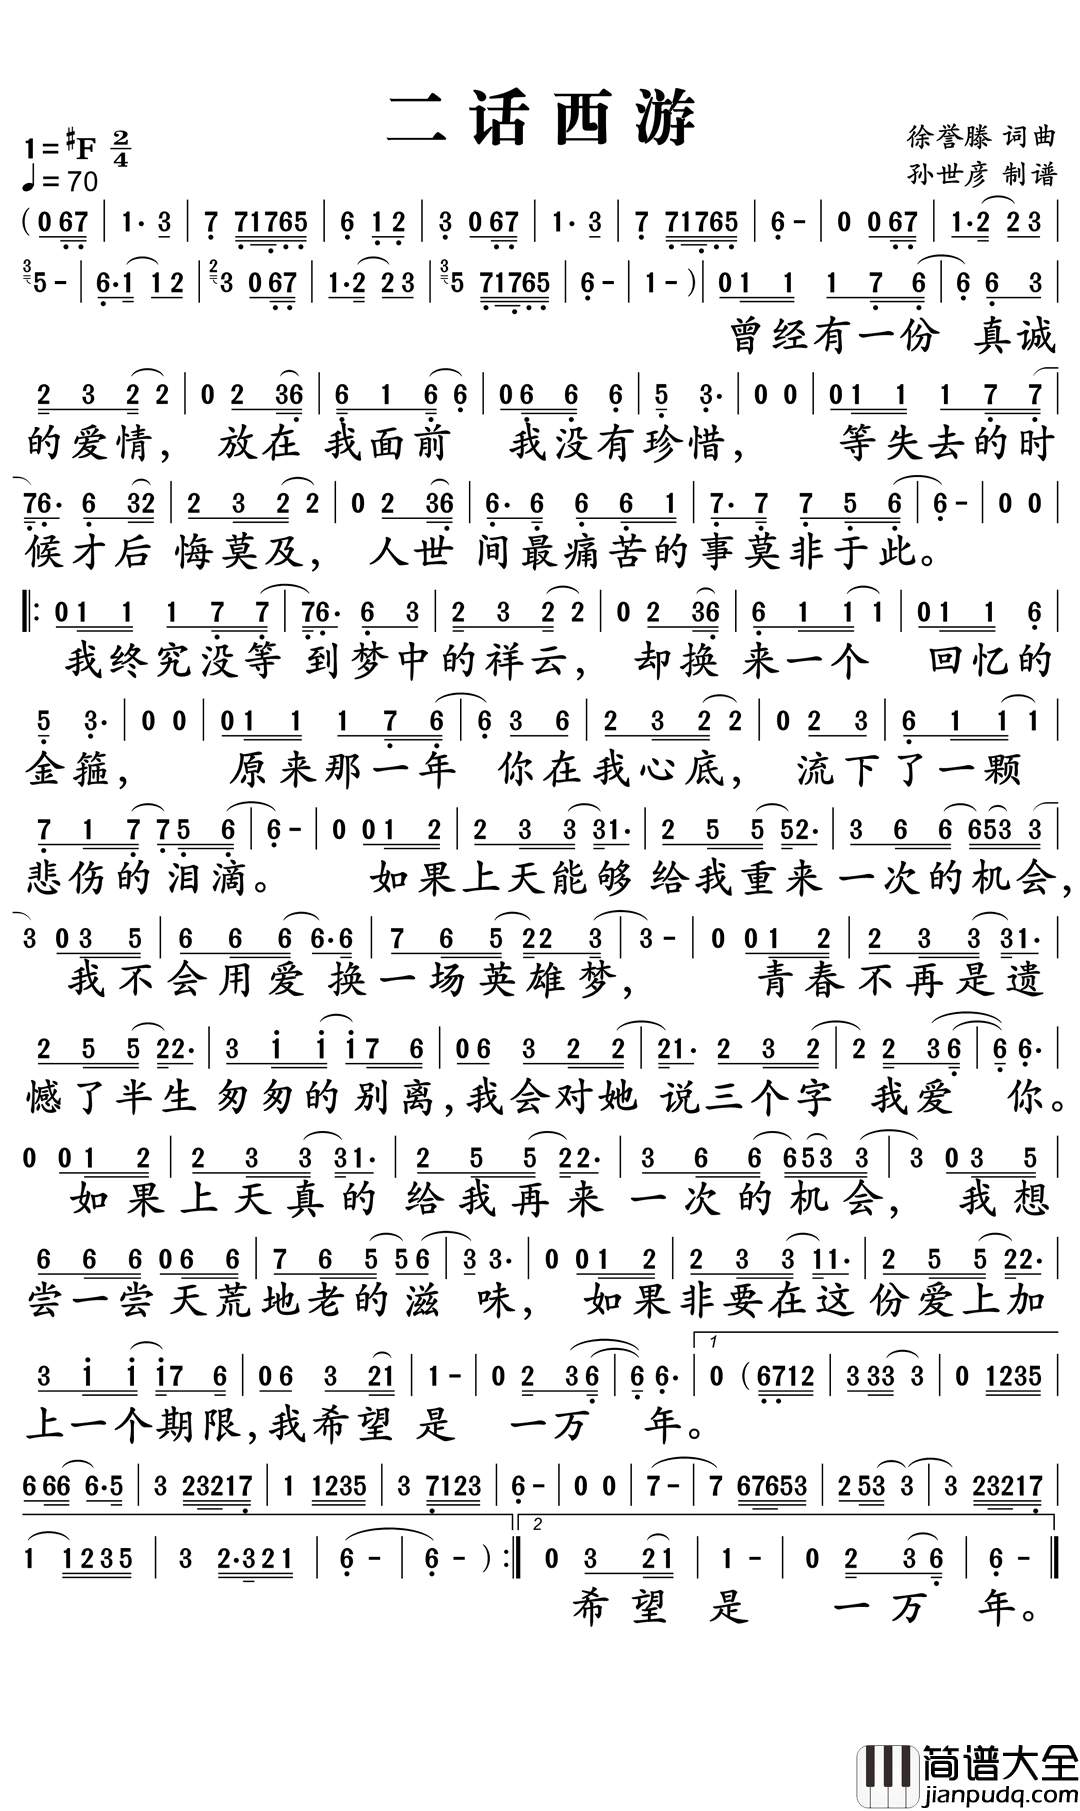 二话西游
1=#F 2/4
徐誉滕 词曲
♩=70
孙世彦 制谱
(0 67 | 1· 3 | 7 71765 | 6 12 | 3 0 67 | 1· 3 | 7 71765 | 6 - | 0 0 67 | 1·2 2 3 |
3 5 - | 6·1 1 2 | 2 3 0 67 | 1·2 2 3 | 3 5 71765 | 6 - | 1 - ) | 0 1 1 1 7 6 | 6 6 3 |
曾经有一份 真诚
2 3 2 2 | 0 2 36 | 6 1 6 6 | 0 6 6 6 | 5 3· | 0 0 | 0 1 1 1 7 7 |
的爱情， 放在 我面前 我没有珍惜， 等失去的时
76· 6 32 | 2 3 2 2 | 0 2 36 | 6· 6 6 6 1 | 7· 7 7 5 6 | 6 - | 0 0 |
候才后 悔莫及， 人世 间最痛苦的事莫非于此。
‖: 0 1 1 1 7 7 | 76· 6 3 | 2 3 2 2 | 0 2 36 | 6 1 1 1 | 0 1 1 6 |
我终究没等 到梦中的祥云， 却换 来一个 回忆的
5 3· | 0 0 | 0 1 1 1 7 6 | 6 3 6 | 2 3 2 2 | 0 2 3 | 6 1 1 1 |
金箍， 原来那一年 你在我心底， 流下了一颗
7 1 7 7 5 6 | 6 - | 0 0 1 2 | 2 3 3 31· | 2 5 5 52· | 3 6 6 653 3 |
悲伤的泪滴。 如果上天能够 给我重来 一次的机会，
3 0 3 5 | 6 6 6 6·6 | 7 6 5 22 3 | 3 - | 0 0 1 2 | 2 3 3 31· |
我不会用爱 换一场英雄梦， 青春不再是遗
2 5 5 22· | 3 i i i7 6 | 0 6 3 2 2 | 21· 2 3 2 | 2 2 36 | 6 6· |
憾了半生 匆匆的别离，我会对她 说三个字 我爱 你。
0 0 1 2 | 2 3 3 31· | 2 5 5 22· | 3 6 6 653 3 | 3 0 3 5 |
如果上天真的 给我再来 一次的机会， 我想
6 6 6 0 6 6 | 7 6 5 5 6 | 3 3· | 0 0 1 2 | 2 3 3 11· | 2 5 5 22· |
尝一尝 天荒地老的滋 味， 如果非要在这 份爱上加
3 i i i7 6 | 0 6 3 21 | 1 - | 0 2 36 | 6 6· | 1 0 (6712 | 3 33 3 | 0 1235 |
上一个期限，我希望 是 一万 年。
6 66 6·5 | 3 23217 | 1 1235 | 3 7123 | 6 - | 0 0 | 7 - | 7 67653 | 2 53 3 | 3 23217 |
1 1235 | 3 2·321 | 6 - | 6 - ) :‖ 2 0 3 21 | 1 - | 0 2 36 | 6 - ‖
希望 是 一万 年。
简谱大全
jianpudq.com